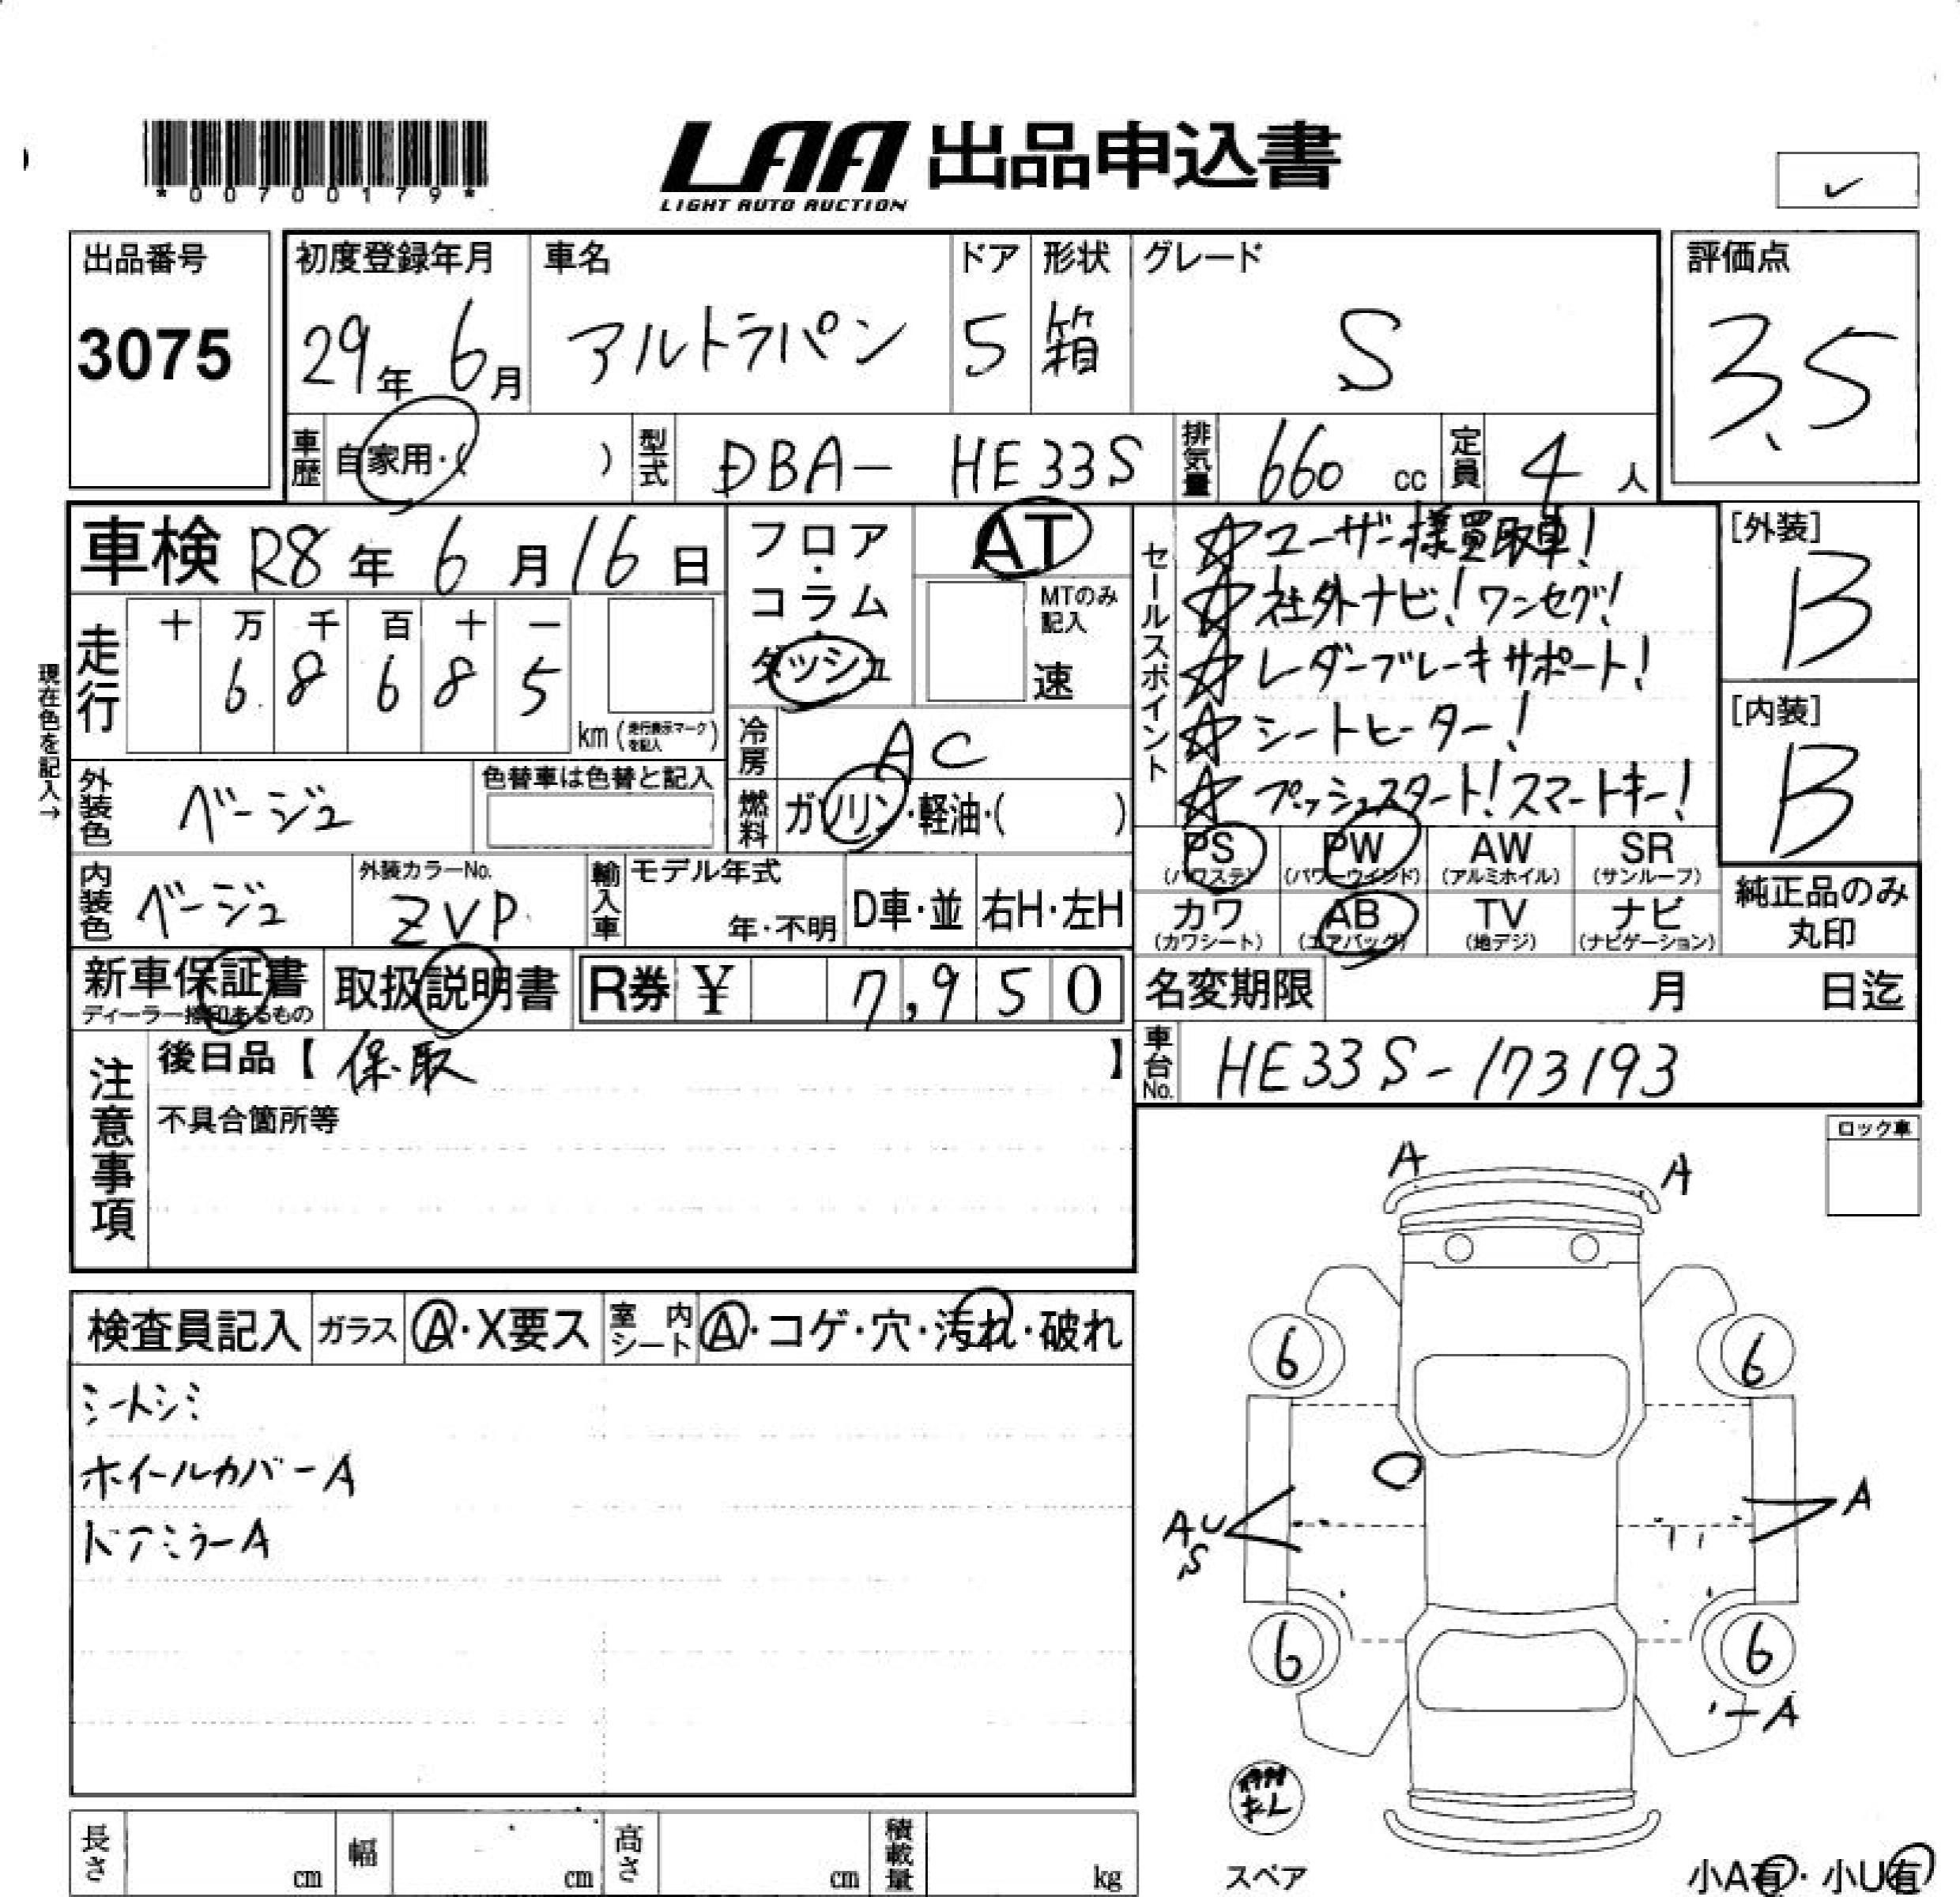 *00700179*
LAA 出品申込書
LIGHT AUTO AUCTION
✓
出品番号
3075
初度登録年月
29年 6月
車名
アルトラパン
ドア
5
形状
箱
グレード
S
評価点
3.5
車歴
自家用・( )
型式
DBA- HE33S
排気量
660 cc
定員
4 人
車検 R8年 6月16日
走行
十 万 千 百 十 一
6 8 6 8 5
km (走行表示マークを記入)
現在色を記入→
フロア・コラム・ダッシュ
AT
MTのみ記入
速
冷房
AC
燃料
ガソリン・軽油・( )
セールスポイント
☆ユーザー様買取車!
☆社外ナビ!ワンセグ!
☆レーダーブレーキサポート!
☆シートヒーター!
☆プッシュスタート!スマートキー!
[外装]
B
[内装]
B
外装色
ベージュ
色替車は色替と記入
内装色
ベージュ
外装カラーNo.
ZVP
輸入車
モデル年式
年・不明
D車・並
右H・左H
PS
(パワステ)
PW
(パワーウインド)
AW
(アルミホイル)
SR
(サンルーフ)
カワ
(カワシート)
AB
(エアバッグ)
TV
(地デジ)
ナビ
(ナビゲーション)
純正品のみ
丸印
新車保証書
ディーラー捺印あるもの
取扱説明書
R券 ¥ 7,950
名変期限
月 日迄
車台No.
HE33S-173193
注意事項
後日品【 保.取 】
不具合箇所等
ロック車
検査員記入
ガラス
A・X要ス
室内シート
A・コゲ・穴・汚れ・破れ
シートシミ
ホイールカバーA
ドアミラーA
A
A
6
6
AU
S
A
6
6
A
キL
スペア
小A有・小U有
長さ
cm
幅
cm
高さ
cm
積載量
kg